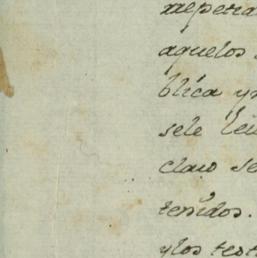 aquelos
blica y
sele
claro se
tenidos.
y los test